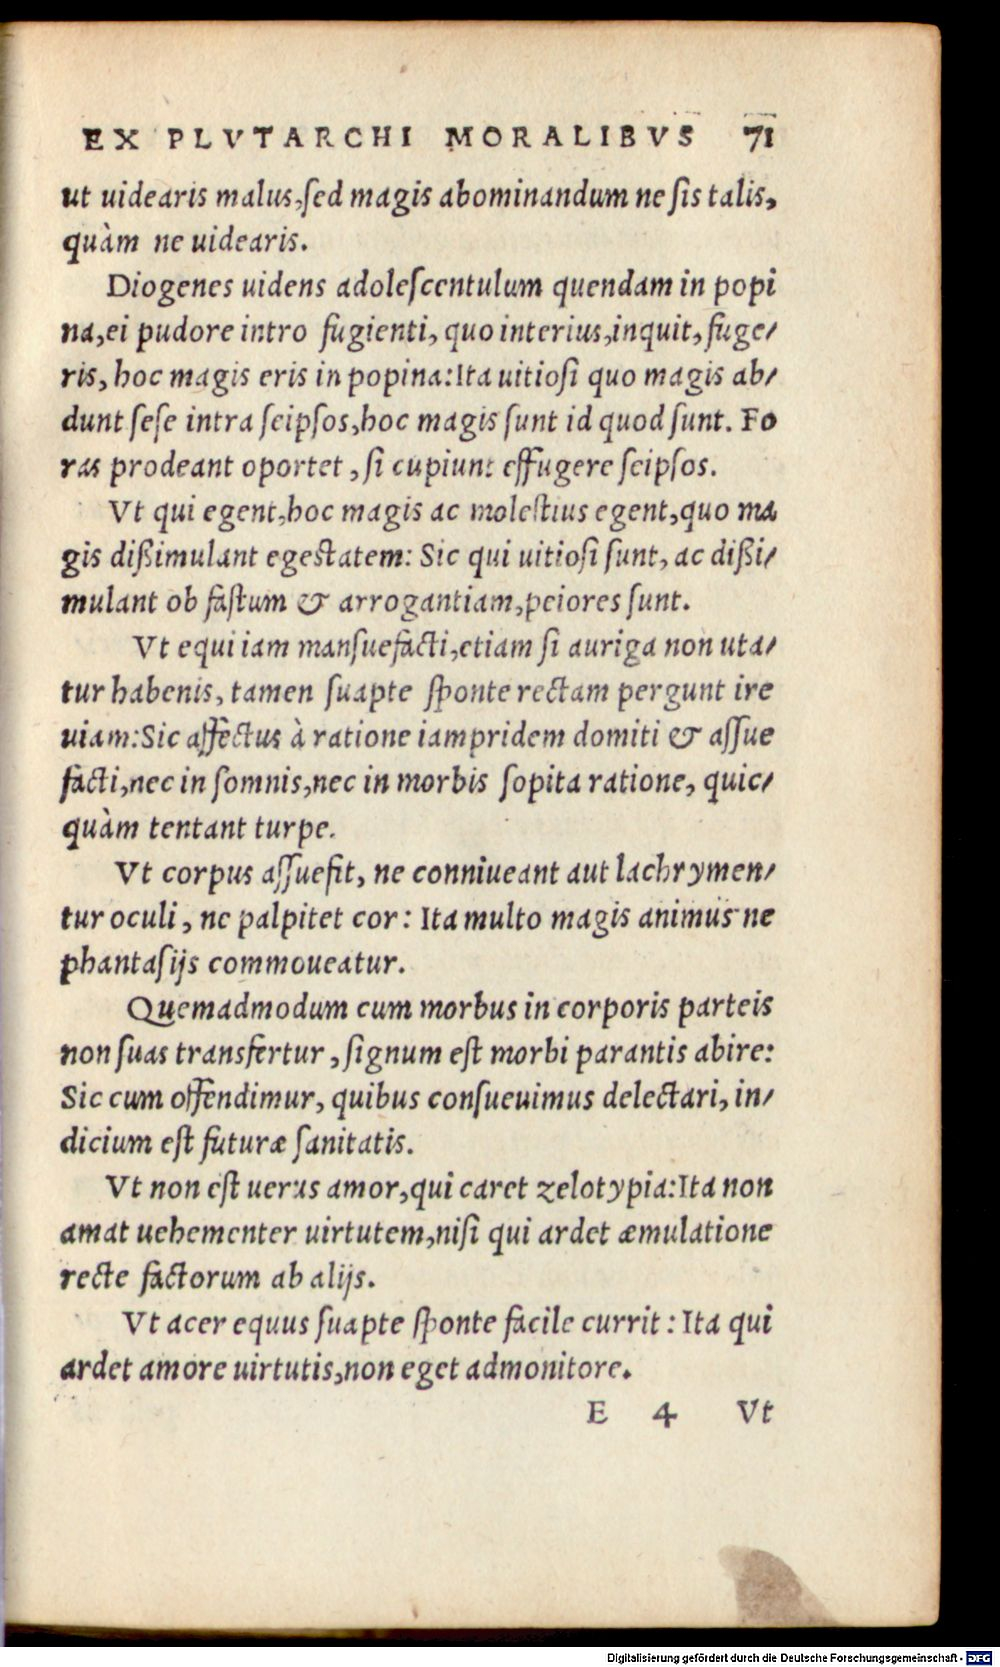 EX PLVTARCHI MORALIBVS 71
ut uidearis malus, sed magis abominandum ne sis talis,
quàm ne uidearis.
Diogenes uidens adolescentulum quendam in popi
na, ei pudore intro fugienti, quo interius, inquit, fuge/
ris, hoc magis eris in popina: Ita uitiosi quo magis ab/
dunt sese intra seipsos, hoc magis sunt id quod sunt. Fo
ras prodeant oportet, si cupiunt effugere seipsos.
Vt qui egent, hoc magis ac molestius egent, quo ma
gis dißimulant egestatem: Sic qui uitiosi sunt, ac dißi/
mulant ob fastum & arrogantiam, peiores sunt.
Vt equi iam mansuefacti, etiam si auriga non uta/
tur habenis, tamen suapte sponte rectam pergunt ire
uiam: Sic affectus à ratione iampridem domiti & assue
facti, nec in somnis, nec in morbis sopita ratione, quic/
quàm tentant turpe.
Vt corpus assuefit, ne conniueant aut lachrymen/
tur oculi, ne palpitet cor: Ita multo magis animus ne
phantasijs commoueatur.
Quemadmodum cum morbus in corporis parteis
non suas transfertur, signum est morbi parantis abire:
Sic cum offendimur, quibus consueuimus delectari, in/
dicium est futuræ sanitatis.
Vt non est uerus amor, qui caret zelotypia: Ita non
amat uehementer uirtutem, nisi qui ardet æmulatione
recte factorum ab alijs.
Vt acer equus suapte sponte facile currit: Ita qui
ardet amore uirtutis, non eget admonitore.
E 4 Vt
Digitalisierung gefördert durch die Deutsche Forschungsgemeinschaft - DFG